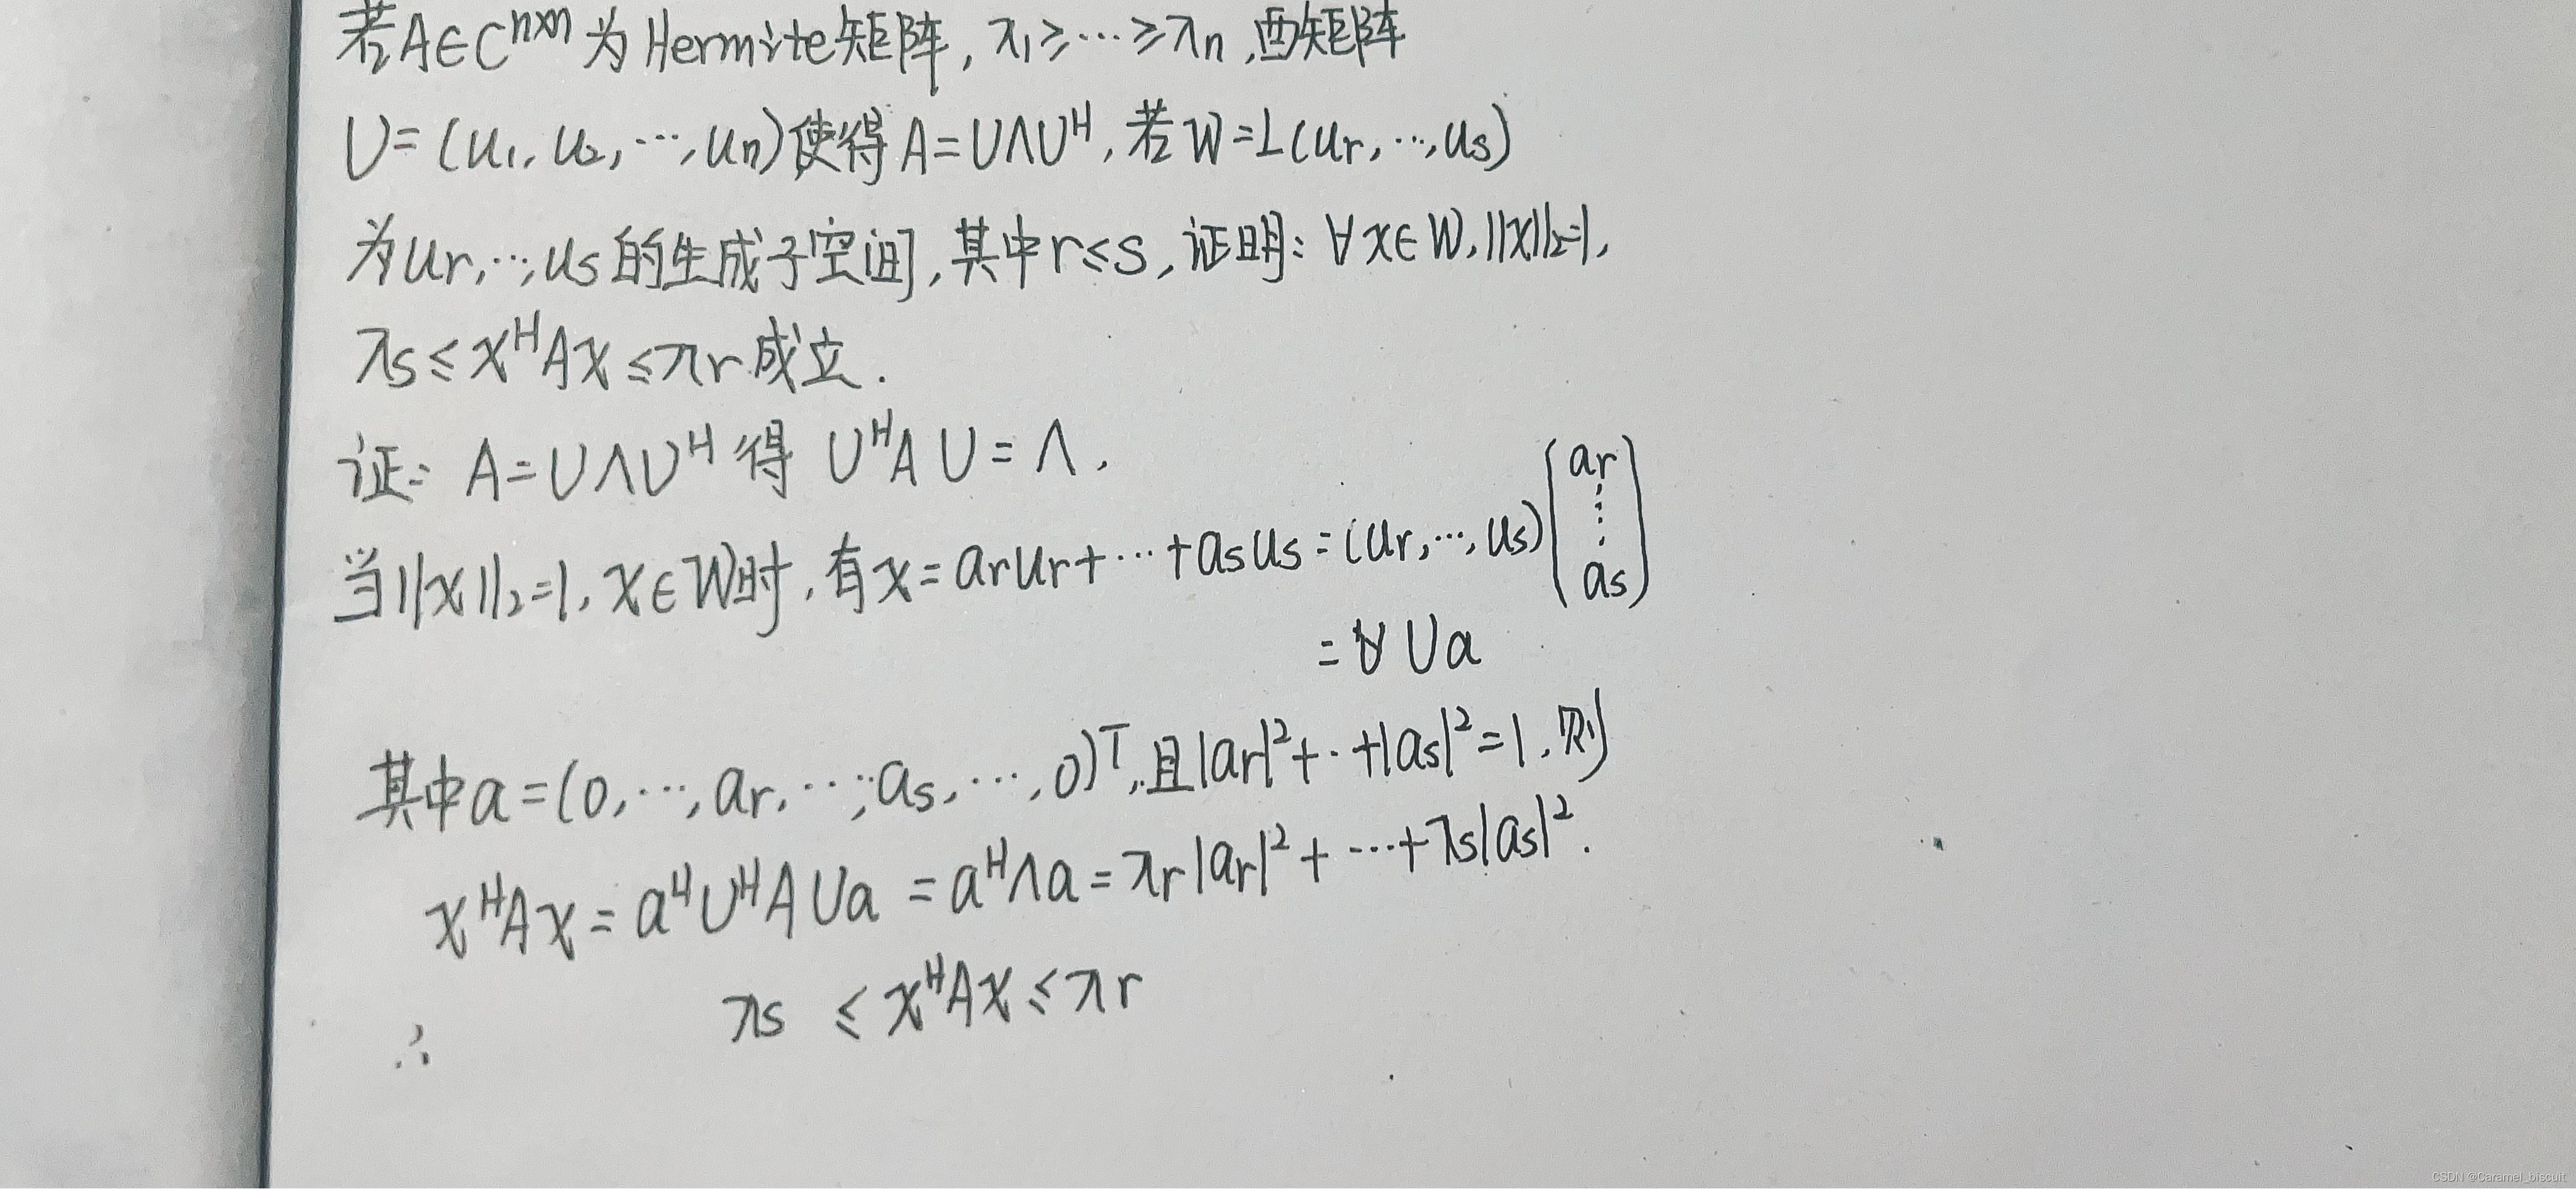 若A∈C^{n×n}为Hermite矩阵, λ₁≥…≥λn, 酉矩阵
U=(u₁, u₂, …, un)使得A=UΛU^H, 若W=L(ur, …, us)
为ur, …, us的生成子空间, 其中r≤s, 证明: ∀x∈W, ||x||₂=1,
λs≤x^HAx≤λr成立.
证: A=UΛU^H得 U^HAU=Λ.
当||x||₂=1, x∈W时, 有x=arur+…+asus=(ur, …, us)(ar ⋮ as)
= Ua
其中a=(0, …, ar, …, as, …, 0)^T, 且|ar|²+…+|as|²=1, 则
x^HAx=a^HU^HAUa=a^HΛa=λr|ar|²+…+λs|as|².
∴ λs≤x^HAx≤λr
CSDN @Caramel_biscuit